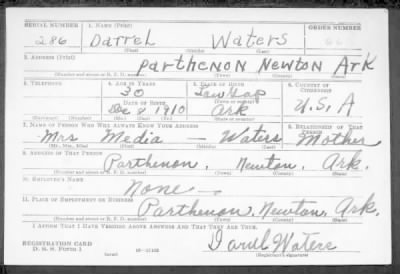 SERIAL NUMBER 1. NAME (Print) ORDER NUMBER
286 Darrel Waters
(First) (Middle) (Last)
2. ADDRESS (Print)
Parthenon Newton Ark
(Number and street or R. F. D. number) (Town) (County) (State)
3. TELEPHONE 4. AGE IN YEARS 5. PLACE OF BIRTH 6. COUNTRY OF CITIZENSHIP
30
DATE OF BIRTH (Town or county)
Dec 9 1910 Ark U.S.A
(Exchange) (Number) (Mo.) (Day) (Yr.) (State or country)
7. NAME OF PERSON WHO WILL ALWAYS KNOW YOUR ADDRESS 8. RELATIONSHIP OF THAT PERSON
Mrs Media — Waters Mother
(Mr., Mrs., Miss) (First) (Middle) (Last)
9. ADDRESS OF THAT PERSON
Parthenon, Newton, Ark.
(Number and street or R. F. D. number) (Town) (County) (State)
10. EMPLOYER'S NAME
None —
11. PLACE OF EMPLOYMENT OR BUSINESS
Parthenon, Newton, Ark.
(Number and street or R. F. D. number) (Town) (County) (State)
I AFFIRM THAT I HAVE VERIFIED ABOVE ANSWERS AND THAT THEY ARE TRUE.
REGISTRATION CARD
D. S. S. FORM 1
Darul Waters
(Registrant's signature)